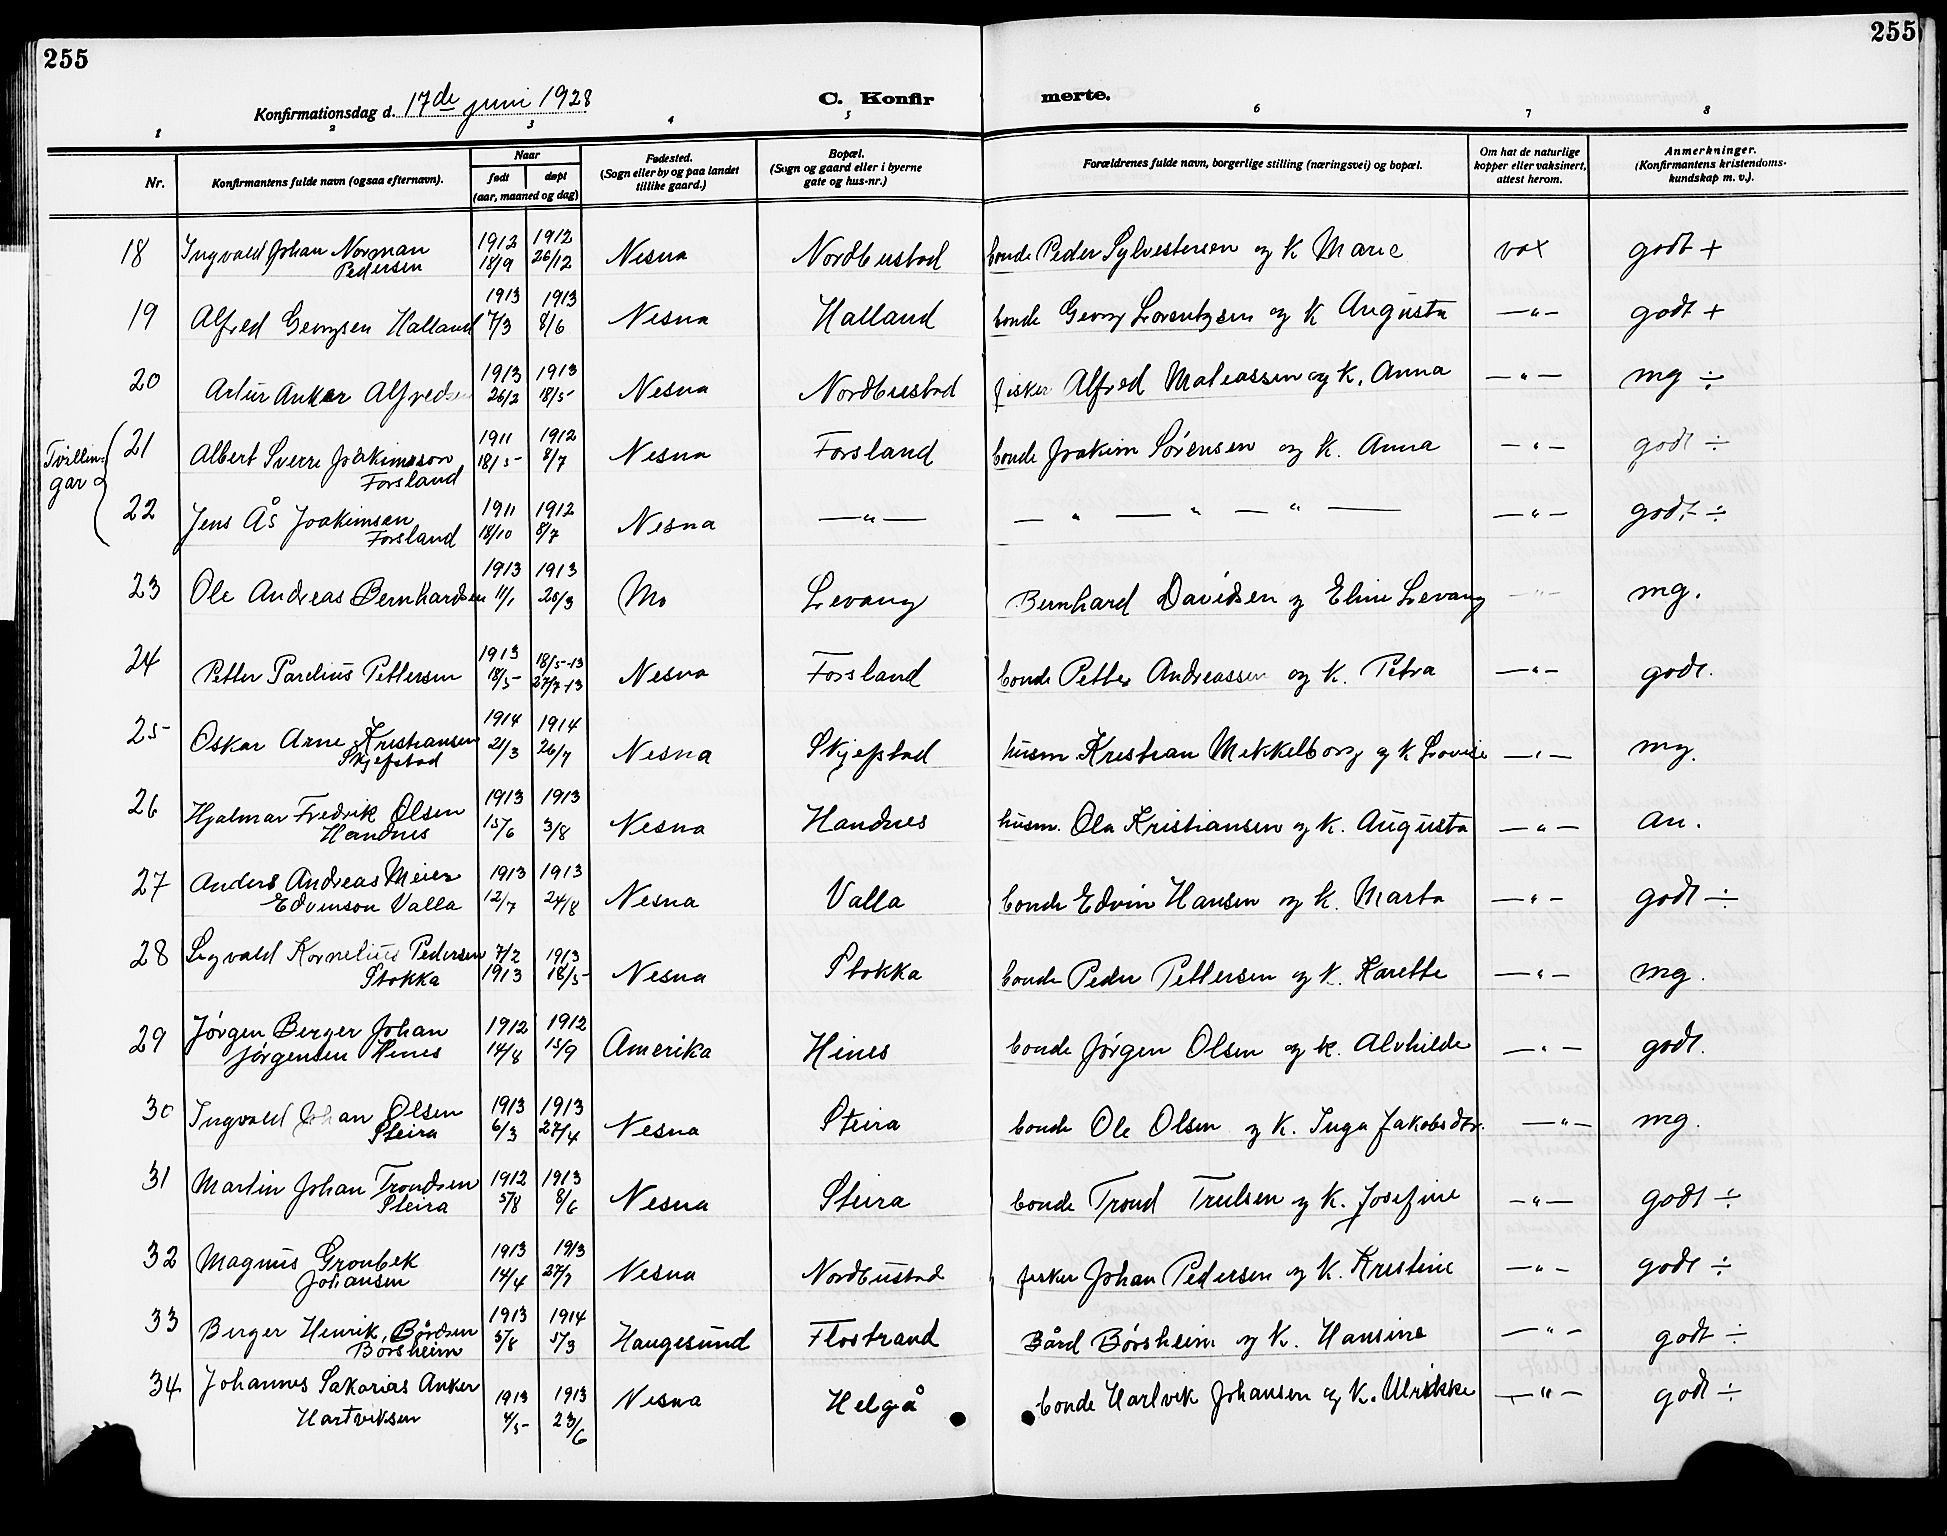 255
255
Konfirmationsdag d. 17de juni 1928
C. Konfir
merte.
1 2 3 4 5 6 7 8
Nr.
Konfirmantens fulde navn (ogsaa efternavn).
Naar
født
døpt
(aar, maaned og dag)
Fødested.
(Sogn eller by og paa landet
tillike gaard.)
Bopæl.
(Sogn og gaard eller i byerne
gate og hus-nr.)
Forældrenes fulde navn, borgerlige stilling (næringsvei) og bopæl.
Om hat de naturlige
kopper eller vaksinert,
attest herom.
Anmerkninger.
(Konfirmantens kristendoms-
kundskap m. v.).
18 Ingvald Johan Norman 1912 1912 Nesna Nordbustad bonde Peder Sylvestersen og k Marie vax godt +
Pedersen 18/9 26/12
19 1913 1913
Alfred Georgsen Halland 7/3 8/6 Nesna Halland bonde Georg Lorentzsen og k Augusta —"— godt +
20 1913 1913
Artur Anker Alfredsen 26/2 18/5 Nesna Nordbustad fisker Alfred Mateassen og k. Anna —"— mg ÷
Tvillin-
gar
21 1911 1912
Albert Sverre Joakimsson 18/5 8/7 Nesna Forsland bonde Joakim Sørensen og k. Anna —"— godt ÷
Forsland
22 Jens Ås Joakimsen 1911 1912 Nesna —"— —"—"—"— —"— godt ÷
Forsland 18/10 8/7
23 1913 1913
Ole Andreas Bernhardsen 11/1 25/3 Mo Levang Bernhard Davidsen og Eline Levang —"— mg.
24 1913 18/5-13
Petter Parelius Pettersen 18/5 27/7-13 Nesna Forsland bonde Petter Andreassen og k. Petra —"— godt.
25 1914 1914
Oskar Arne Kristiansen 21/3 26/7 Nesna Skjefstad husm Kristian Mekkelborg og k Lovise —"— mg.
Skjefstad
26 1913 1913
Hjalmar Fredrik Olsen 15/6 3/8 Nesna Handnes husm. Ola Kristiansen og k. Augusta —"— an.
Handnes
27 Anders Andreas Meier 1913 1913
Edvinson Valla 12/7 24/8 Nesna Valla bonde Edvin Hansen og k. Marta —"— godt ÷
28 Sigvald Kornelius Pedersen 7/2 1913
Stokka 1913 18/5 Nesna Stokka bonde Peder Pettersen og k. Karette —"— mg.
29 Jørgen Berger Johan 1912 1912
Jørgensen Hines 14/8 15/9 Amerika Hines bonde Jørgen Olsen og k. Alvhilde —"— godt.
30 Ingvald Johan Olsen 1913 1913
Steira 6/3 27/4 Nesna Steira bonde Ole Olsen og k. Inga Jakobsdtr. —"— mg.
31 Martin Johan Trondsen 1912 1913
Steira 5/8 8/6 Nesna Steira bonde Trond Trulsen og k. Josefine —"— godt ÷
32 Magnus Gronbek 1913 1913
Johansen 14/4 27/7 Nesna Nordbustad fisker Johan Pedersen og k. Kristine —"— godt ÷
33 1913 1914
Berger Henrik Bårdsen 5/8 5/3 Haugesund Flostrand Bård Børsheim og k. Hansine —"— godt ÷
Børsheim
34 Johannes Sakarias Anker 1913 1913 Nesna Helgå bonde Hartvik Johansen og k. Ulrikke —"— godt ÷
Hartviksen 4/5 23/6